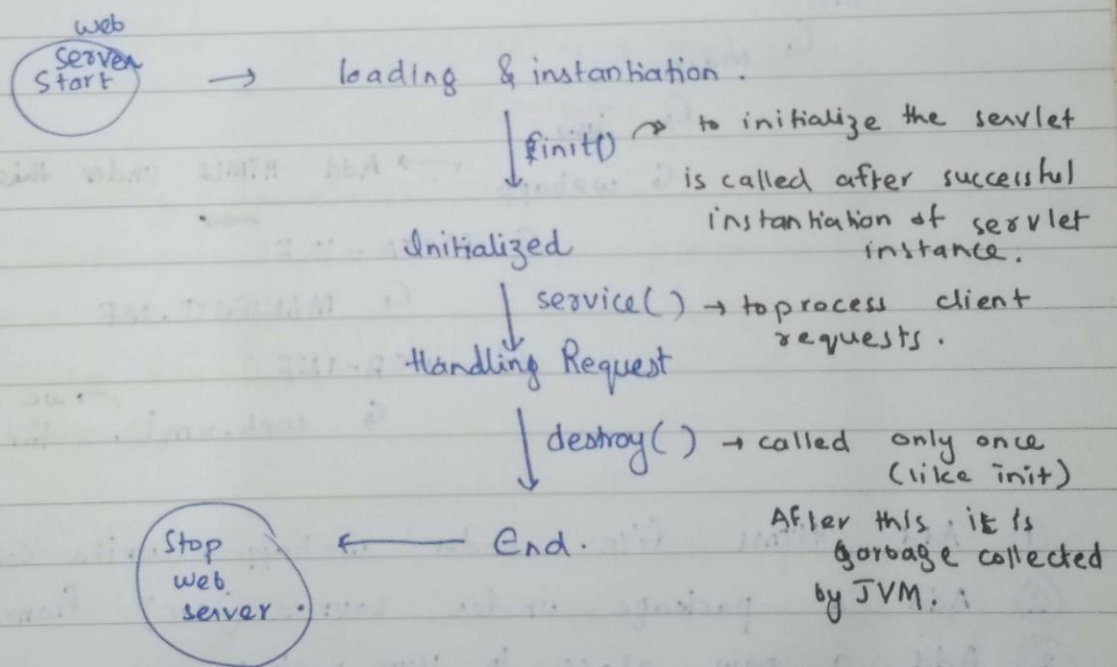 web
server
Start → loading & instantiation.
init() → to initialize the servlet
is called after successful
instantiation of servlet
instance.
Initialized
service() → to process client
requests.
Handling Request
destroy() → called only once
(like init)
After this it is
garbage collected
by JVM.
End.
Stop
web
server.